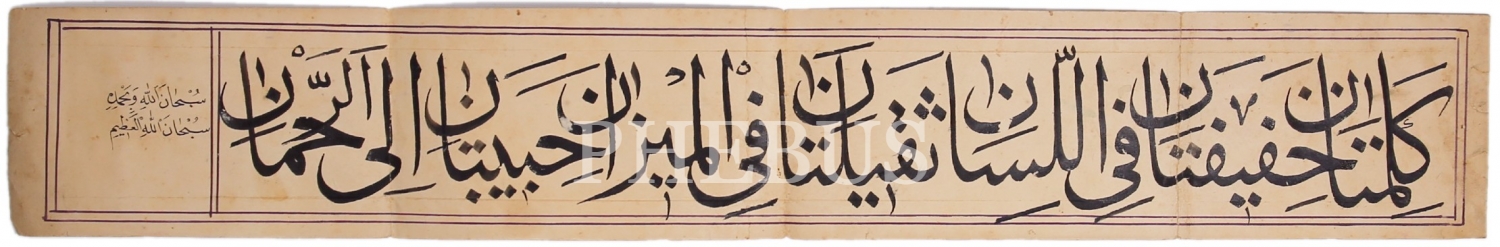 كلمتان خفيفتان فى اللسان ثقيلتان فى الميزان حبيبتان الى الرحمان
سبحان الله وبحمده
سبحان الله العظيم
PHEBUS